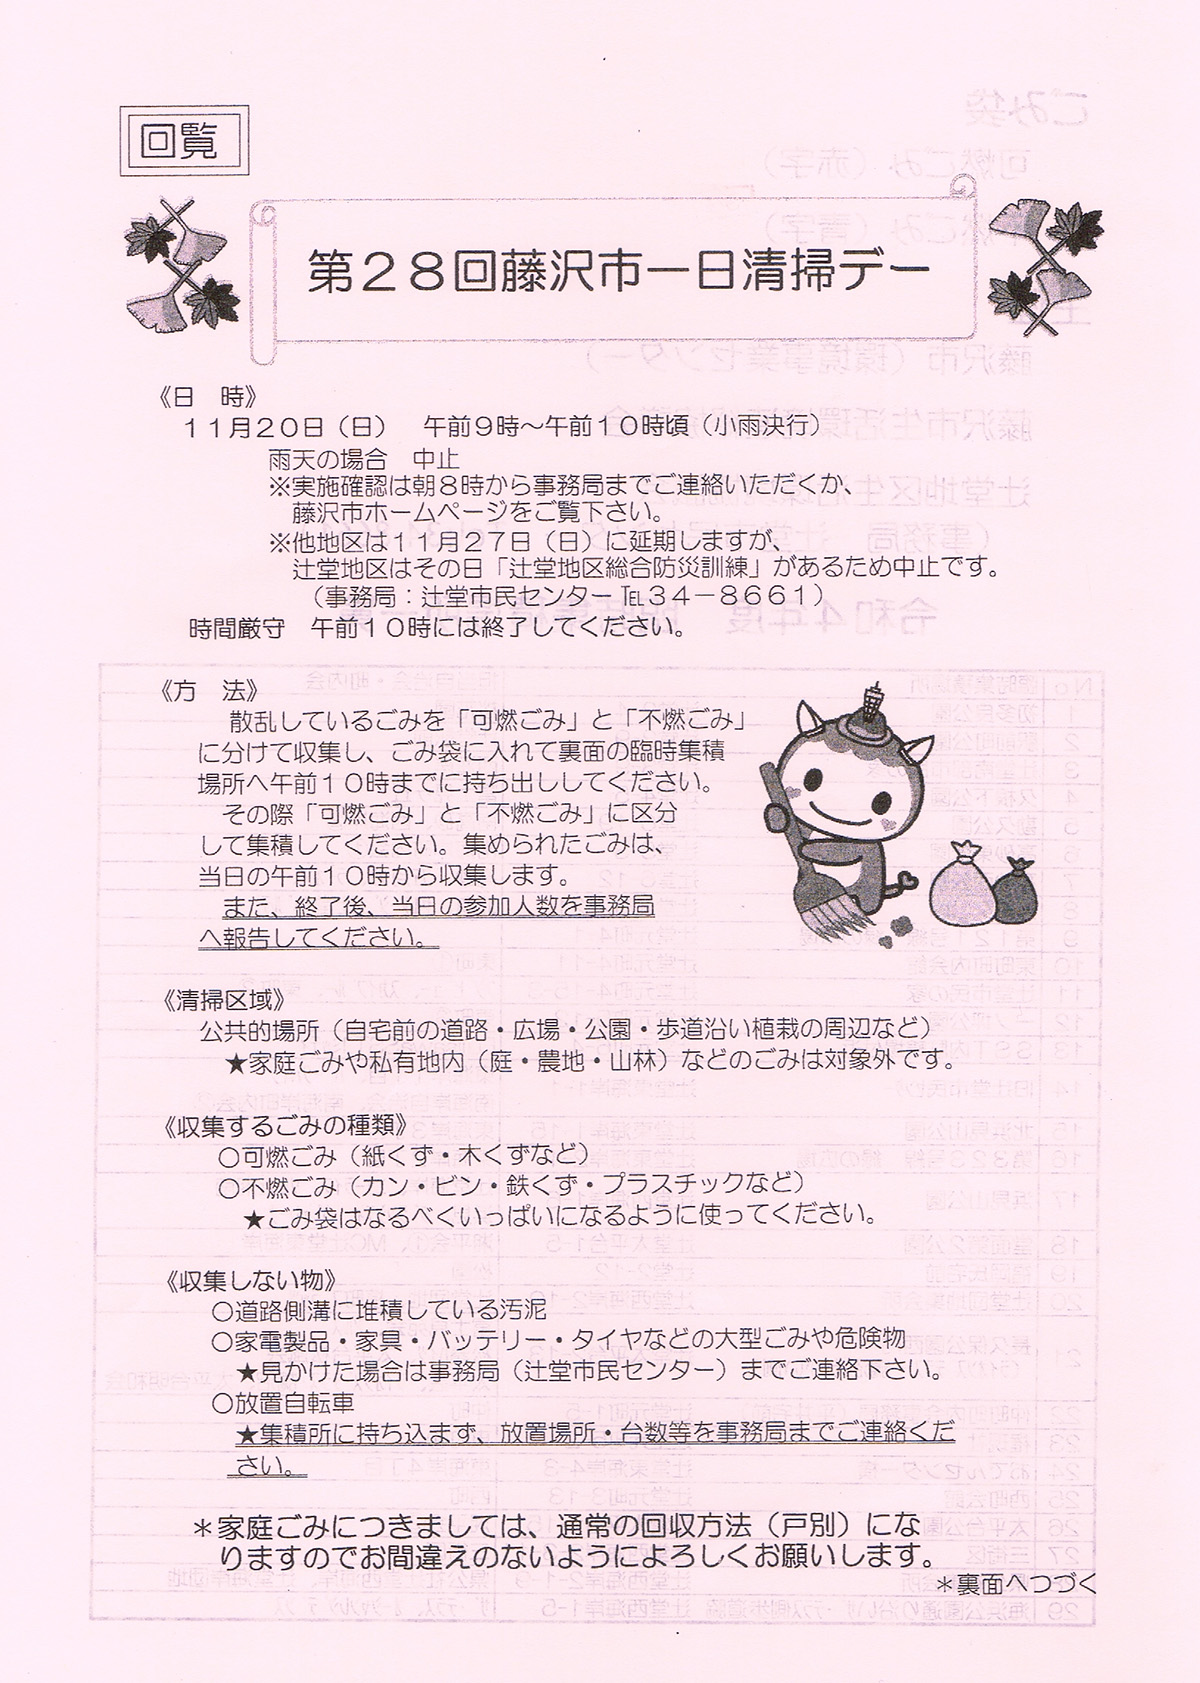 回覧
第２８回藤沢市一日清掃デー
《日　時》
１１月２０日（日）　午前９時～午前１０時頃（小雨決行）
雨天の場合　中止
※実施確認は朝８時から事務局までご連絡いただくか、
藤沢市ホームページをご覧下さい。
※他地区は１１月２７日（日）に延期しますが、
辻堂地区はその日「辻堂地区総合防災訓練」があるため中止です。
（事務局：辻堂市民センター℡３４－８６６１）
時間厳守　午前１０時には終了してください。
《方　法》
散乱しているごみを「可燃ごみ」と「不燃ごみ」
に分けて収集し、ごみ袋に入れて裏面の臨時集積
場所へ午前１０時までに持ち出ししてください。
その際「可燃ごみ」と「不燃ごみ」に区分
して集積してください。集められたごみは、
当日の午前１０時から収集します。
また、終了後、当日の参加人数を事務局
へ報告してください。
《清掃区域》
公共的場所（自宅前の道路・広場・公園・歩道沿い植栽の周辺など）
★家庭ごみや私有地内（庭・農地・山林）などのごみは対象外です。
《収集するごみの種類》
○可燃ごみ（紙くず・木くずなど）
○不燃ごみ（カン・ビン・鉄くず・プラスチックなど）
★ごみ袋はなるべくいっぱいになるように使ってください。
《収集しない物》
○道路側溝に堆積している汚泥
○家電製品・家具・バッテリー・タイヤなどの大型ごみや危険物
★見かけた場合は事務局（辻堂市民センター）までご連絡下さい。
○放置自転車
★集積所に持ち込まず、放置場所・台数等を事務局までご連絡くだ
さい。
＊家庭ごみにつきましては、通常の回収方法（戸別）にな
りますのでお間違えのないようによろしくお願いします。
＊裏面へつづく